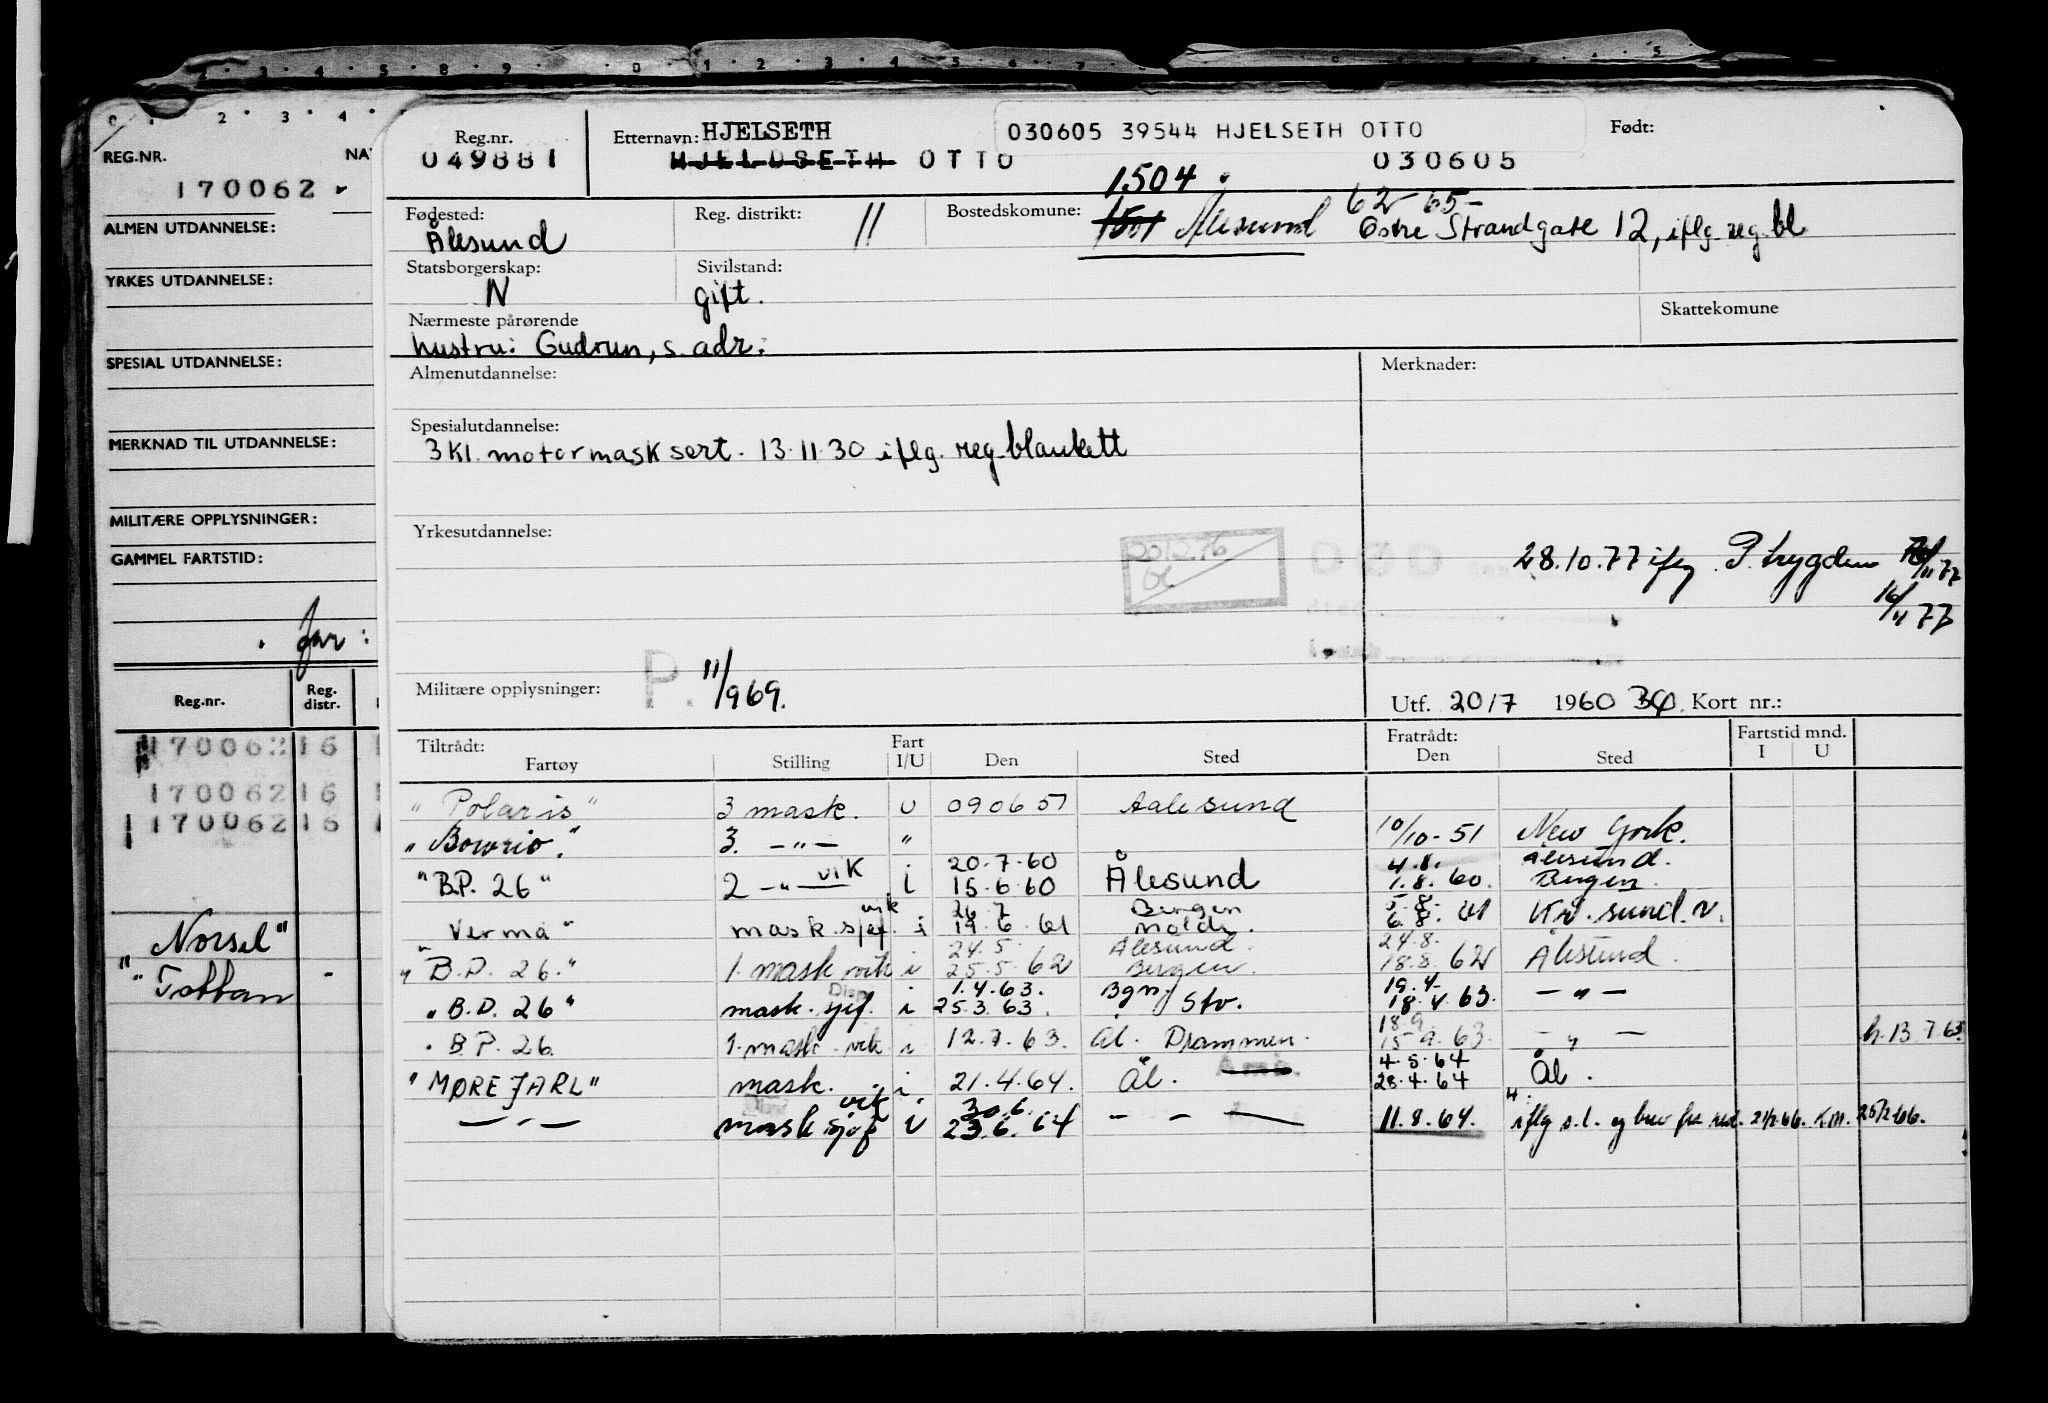 REG.NR.
170062
ALMEN UTDANNELSE:
YRKES UTDANNELSE:
SPESIAL UTDANNELSE:
MERKNAD TIL UTDANNELSE:
MILITÆRE OPPLYSNINGER:
GAMMEL FARTSTID:
Reg.nr. Reg. distr.
170062 16
170062 16
170062 16
"Norsel"
"Tottan -
Reg.nr. Etternavn: HJELSETH 030605 39544 HJELSETH OTTO Født:
049881 HJELDSETH OTTO 030605
1504
Fødested: Reg. distrikt: 11 Bostedskomune: 1501 Ålesund 62 65-
Ålesund Østre Strandgate 12, iflg. reg.bl
Statsborgerskap: Sivilstand:
N gift.
Nærmeste pårørende Skattekomune
hustru: Gudrun, s. adr.
Almenutdannelse: Merknader:
Spesialutdannelse:
3 kl. motormask sert. 13.11.30 iflg. reg.blankett
Yrkesutdannelse:
DØD
28.10.77 iflg. P.trygden
16/11 77
Militære opplysninger: P. 11/969. Utf. 20/7 1960 Kort nr.:
Tiltrådt: Fart Fratrådt: Fartstid mnd.
Fartøy Stilling I/U Den Sted Den Sted I U
"Polaris" 3 mask. U 090651 Aalesund
"Bowrio." 3. -"- " 10/10-51 New York.
"B.P. 26" 2 -"- vik i 20.7.60 15.6.60 Ålesund 4.8. 1.8.60. Ålesund. Bergen.
"Verma" mask.sjef. vik i 26.7 19.6.61 Bergen Molde. 5.8. 6.8.61 Kr.sund.N.
"B.P. 26." 1. mask vik i 24.5. 25.5.62 Ålesund. Bergen. 24.8. 18.8.62 Ålesund.
"B.P. 26" mask.sjef. Disp. i 1.4.63. 25.3.63. Bgn. Stv. 19.4. 18.4.63. -"-
"B.P. 26. 1. mask. vik i 12.7.63. Ål. Drammen. 18.9. 15.9.63. -"- h.13.7.63.
"MØREJARL" mask. i 21.4.64. Ål. 4.5.64 28.4.64 Ål.
-"- mask sjef vik U 30.6. 23.6.64 - - - 11.8.64. iflg s.l. og brev fra red. 21/2.66. K.M. 25/2-66.